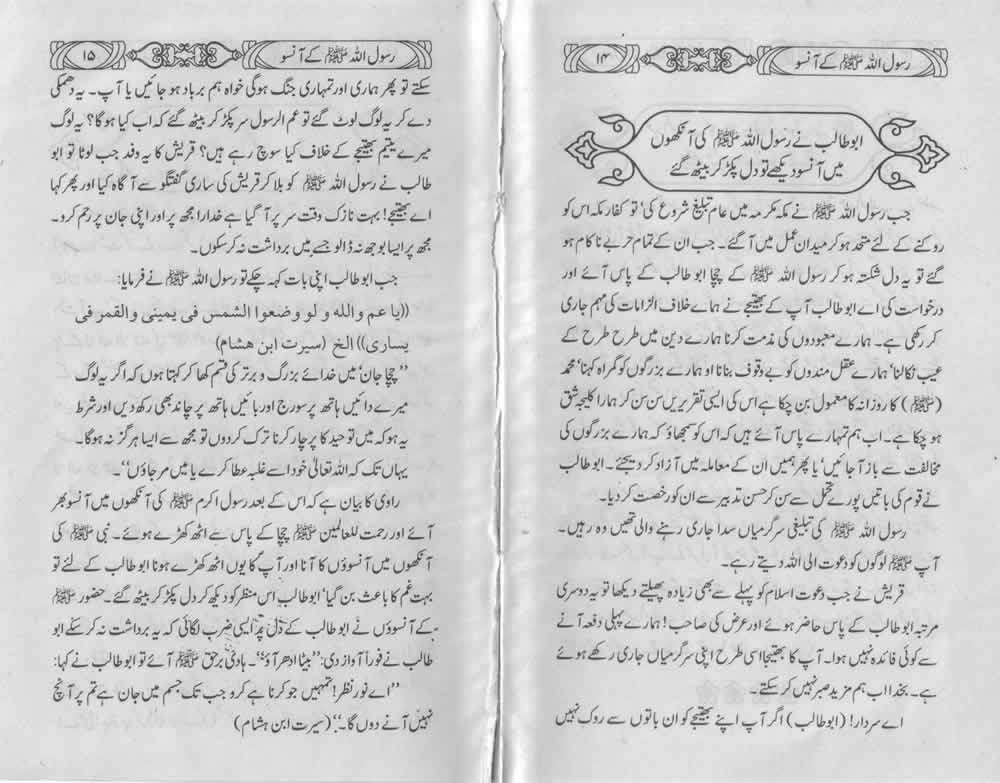 رسول اللہ ﷺ کے آنسو
۱۴
ابوطالب نے رسول اللہ ﷺ کی آنکھوں
میں آنسو دیکھے تو دل پکڑ کر بیٹھ گئے
جب رسول اللہ ﷺ نے مکہ مکرمہ میں عام تبلیغ شروع کی‘ تو کفار مکہ اس کو
روکنے کے لئے متحد ہو کر میدان عمل میں آ گئے۔ جب ان کے تمام حربے ناکام ہو
گئے تو یہ دل شکستہ ہو کر رسول اللہ ﷺ کے چچا ابو طالب کے پاس آئے اور
درخواست کی اے ابوطالب آپ کے بھتیجے نے ہمارے خلاف الزامات کی مہم جاری
کر رکھی ہے۔ ہمارے معبودوں کی مذمت کرنا ہمارے دین میں طرح طرح کے
عیب نکالنا‘ ہمارے عقل مندوں کو بے وقوف بنانا او ہمارے بزرگوں کو گمراہ کہنا‘ محمد
(ﷺ) کا روزانہ کا معمول بن چکا ہے اس کی ایسی تقریریں سن سن کر ہمارا کلیجہ شق
ہو چکا ہے۔ اب ہم تمہارے پاس آئے ہیں کہ اس کو سمجھاؤ کہ ہمارے بزرگوں کی
مخالفت سے باز آ جائیں‘ یا پھر ہمیں ان کے معاملہ میں آزاد کر دیجئے۔ ابو طالب
نے قوم کی باتیں پورے تحمل سے سن کر حسن تدبیر سے ان کو رخصت کر دیا۔
رسول اللہ ﷺ کی تبلیغی سرگرمیاں سدا جاری رہنے والی تھیں وہ رہیں۔
آپ ﷺ لوگوں کو دعوت الی اللہ دیتے رہے۔
قریش نے جب دعوت اسلام کو پہلے سے بھی زیادہ پھیلتے دیکھا تو یہ دوسری
مرتبہ ابو طالب کے پاس حاضر ہوئے اور عرض کی صاحب! ہمارے پہلی دفعہ آنے
سے کوئی فائدہ نہیں ہوا۔ آپ کا بھتیجا اسی طرح اپنی سرگرمیاں جاری رکھے ہوئے
ہے۔ بخدا اب ہم مزید صبر نہیں کر سکتے۔
اے سردار! (ابوطالب) اگر آپ اپنے بھتیجے کو ان باتوں سے روک نہیں
رسول اللہ ﷺ کے آنسو
۱۵
سکتے تو پھر ہماری اور تمہاری جنگ ہوگی خواہ ہم برباد ہو جائیں یا آپ۔ یہ دھمکی
دے کر یہ لوگ لوٹ گئے تو عم الرسول سر پکڑ کر بیٹھ گئے کہ اب کیا ہوگا؟ یہ لوگ
میرے یتیم بھتیجے کے خلاف کیا سوچ رہے ہیں؟ قریش کا یہ وفد جب لوٹا تو ابو
طالب نے رسول اللہ ﷺ کو بلا کر قریش کی ساری گفتگو سے آگاہ کیا اور پھر کہا
اے بھتیجے! بہت نازک وقت سر پر آ گیا ہے خدارا مجھ پر اور اپنی جان پر رحم کرو۔
مجھ پر ایسا بوجھ نہ ڈالو جسے میں برداشت نہ کر سکوں۔
جب ابو طالب اپنی بات کہہ چکے تو رسول اللہ ﷺ نے فرمایا:
((یا عم واللہ و لو وضعوا الشمس فی یمینی والقمر فی
یساری)) الخ (سیرت ابن ھشام)
”چچا جان‘ میں خدائے بزرگ و برتر کی قسم کھا کر کہتا ہوں کہ اگر یہ لوگ
میرے دائیں ہاتھ پر سورج اور بائیں ہاتھ پر چاند بھی رکھ دیں اور شرط
یہ ہو کہ میں توحید کا پرچار کرنا ترک کر دوں تو مجھ سے ایسا ہرگز نہ ہوگا۔
یہاں تک کہ اللہ تعالیٰ خود اسے غلبہ عطا کرے یا میں مر جاؤں“۔
راوی کا بیان ہے کہ اس کے بعد رسول اکرم ﷺ کی آنکھوں میں آنسو بھر
آئے اور رحمت للعالمین ﷺ چچا کے پاس سے اٹھ کھڑے ہوئے۔ نبی ﷺ کی
آنکھوں میں آنسوؤں کا آنا اور آپ کا یوں اٹھ کھڑے ہونا ابوطالب کے لئے تو
بہت غم کا باعث بن گیا‘ ابوطالب اس منظر کو دیکھ کر دل پکڑ کر بیٹھ گئے۔ حضور ﷺ
کے آنسوؤں نے ابوطالب کے دل پر ایسی ضرب لگائی کہ یہ برداشت نہ کر سکے ابو
طالب نے فوراً آواز دی: ”بیٹا ادھر آؤ“۔ ہادئ برحق ﷺ آئے تو ابوطالب نے کہا:
”اے نور نظر! تمہیں جو کرنا ہے کرو جب تک جسم میں جان ہے تم پر آنچ
نہیں آنے دوں گا۔“ (سیرت ابن ھشام)